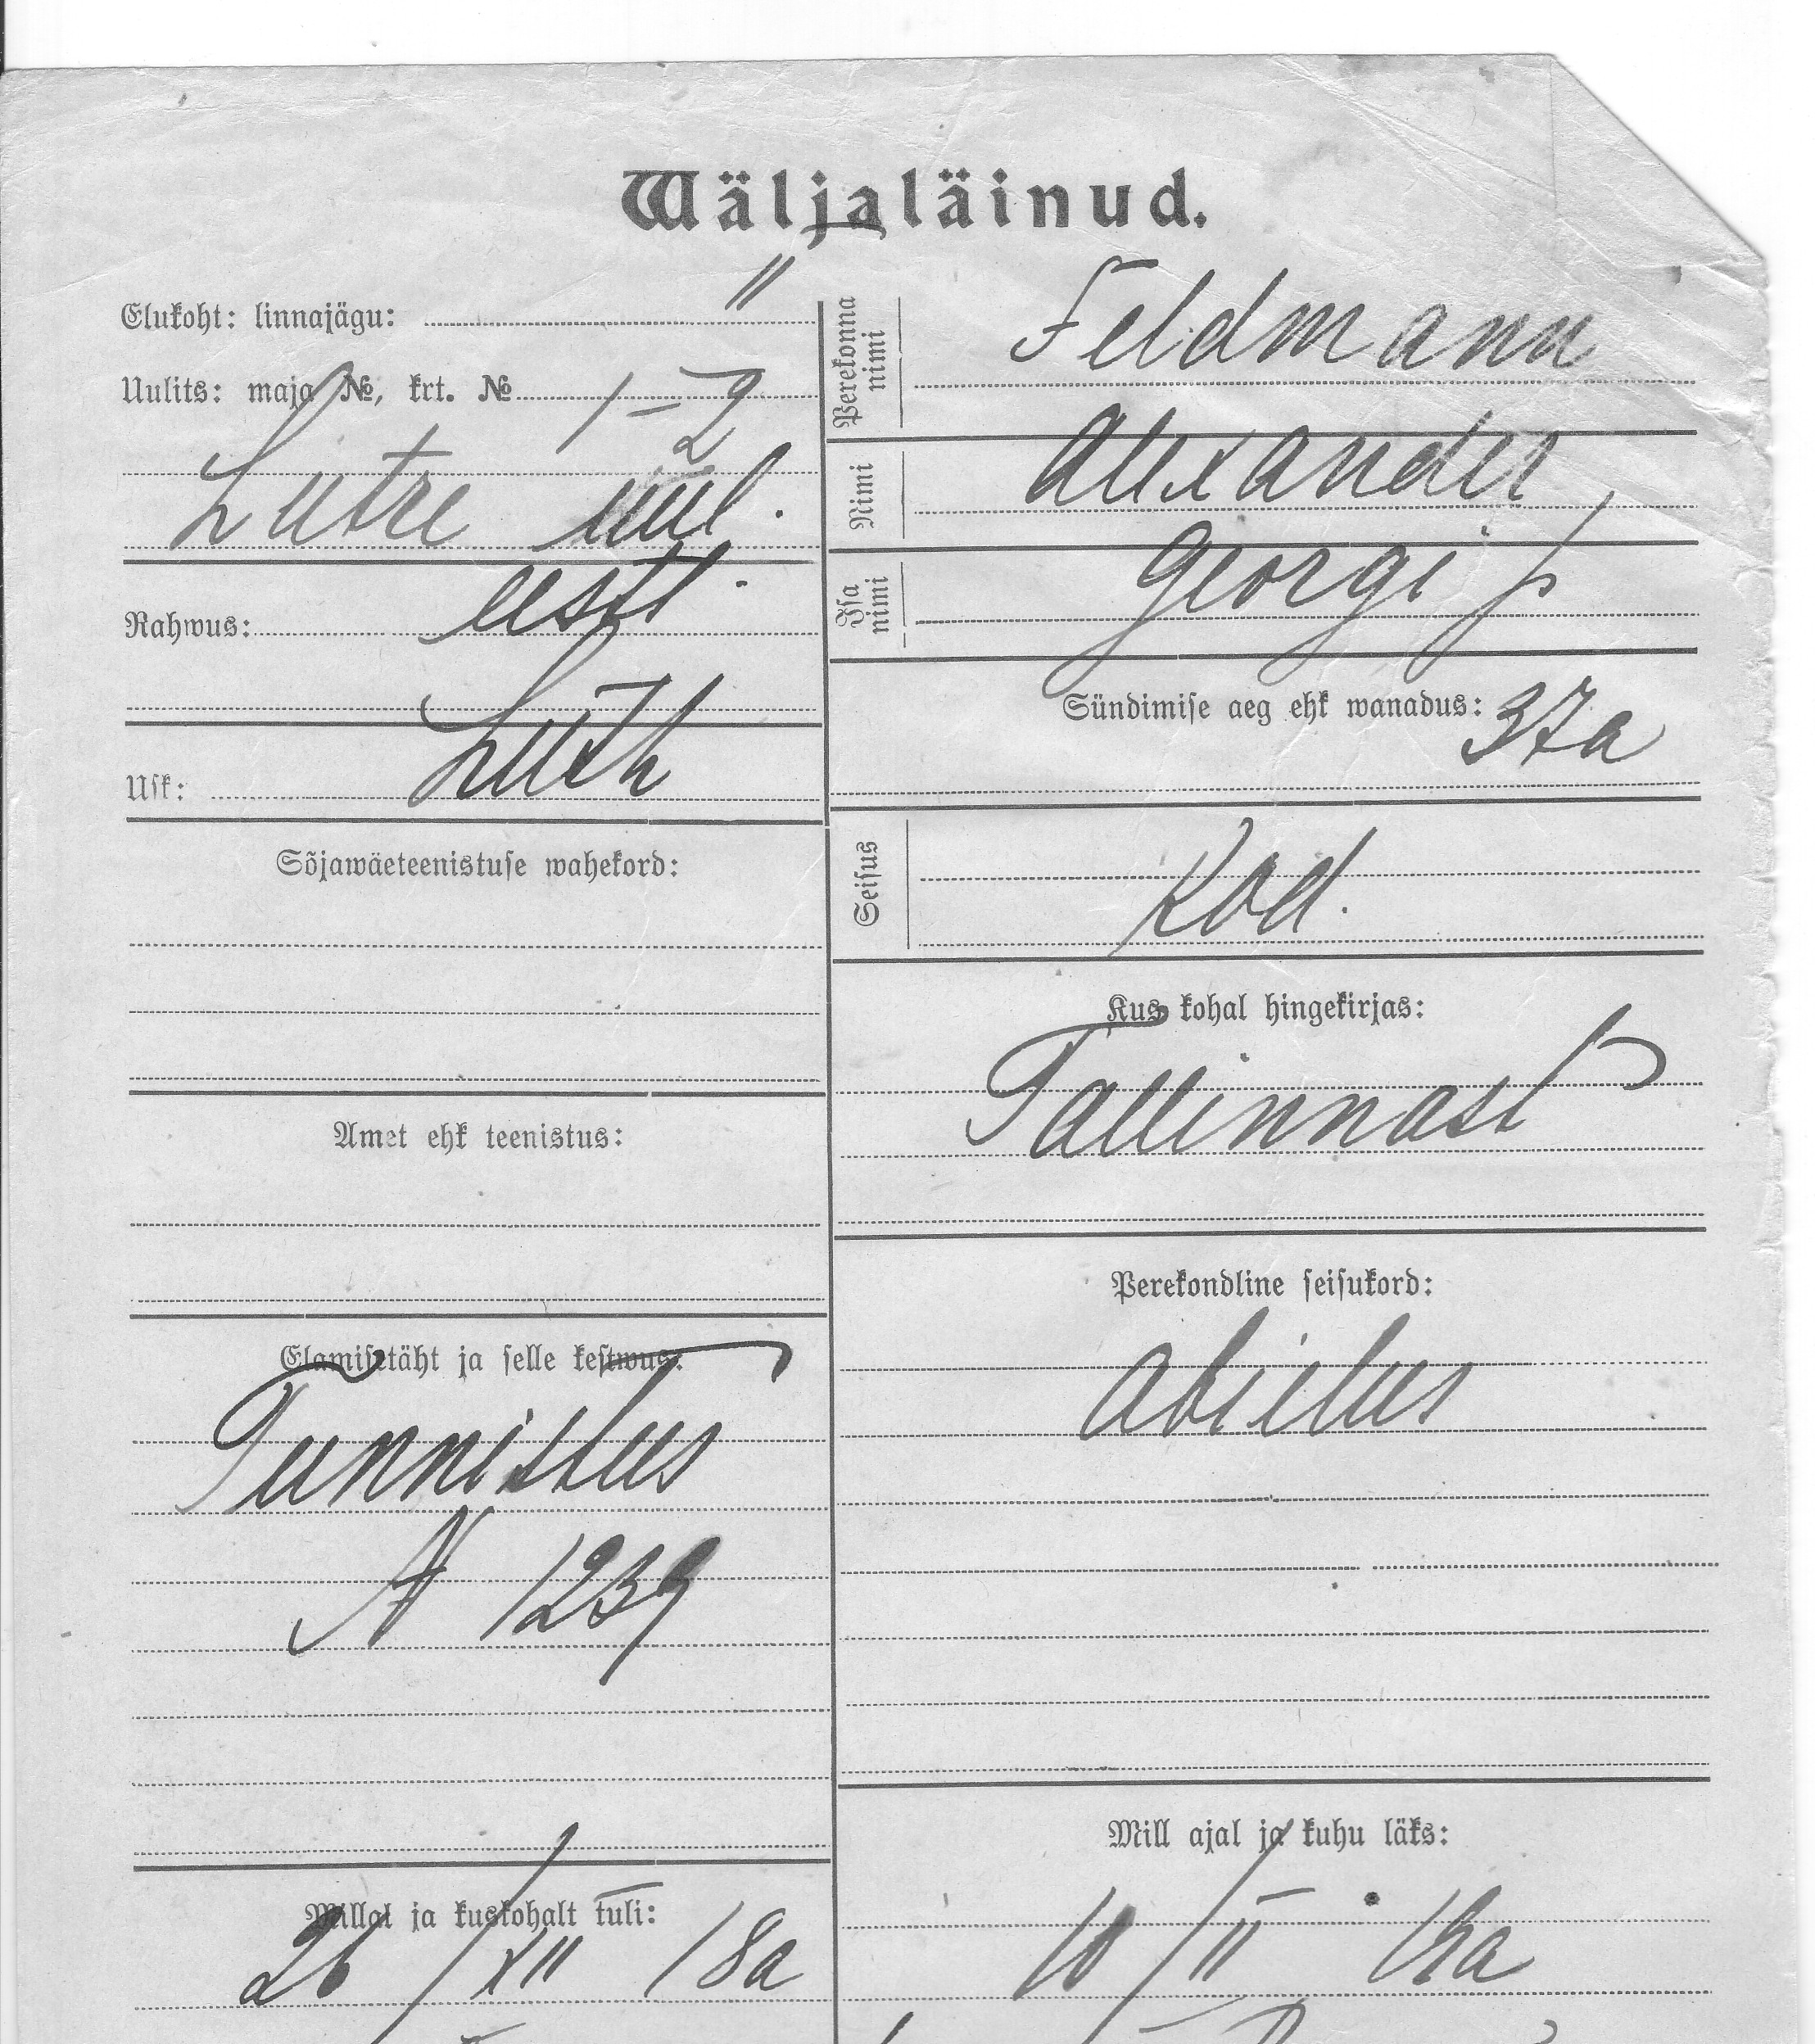 Wäljaläinud.
Elukoht: linnajägu: II
Uulits: maja №, krt. № 1-2
Lutre uul.
Rahwus: eestl.
Usk: Luth
Sõjawäeteenistuse wahekord:
Amet ehk teenistus:
Elamisetäht ja selle kestwus:
Tunnistus
N 1239
Millal ja kuskohalt tuli:
26/XII 18a
Perekonna nimi
Feldmann
Nimi
Alexander
Isa nimi
Georgi p
Sündimise aeg ehk wanadus: 37a
Seisus
Kod.
Kus kohal hingekirjas:
Tallinnast
Perekondline seisukord:
abielus
Mill ajal ja kuhu läks:
10/II